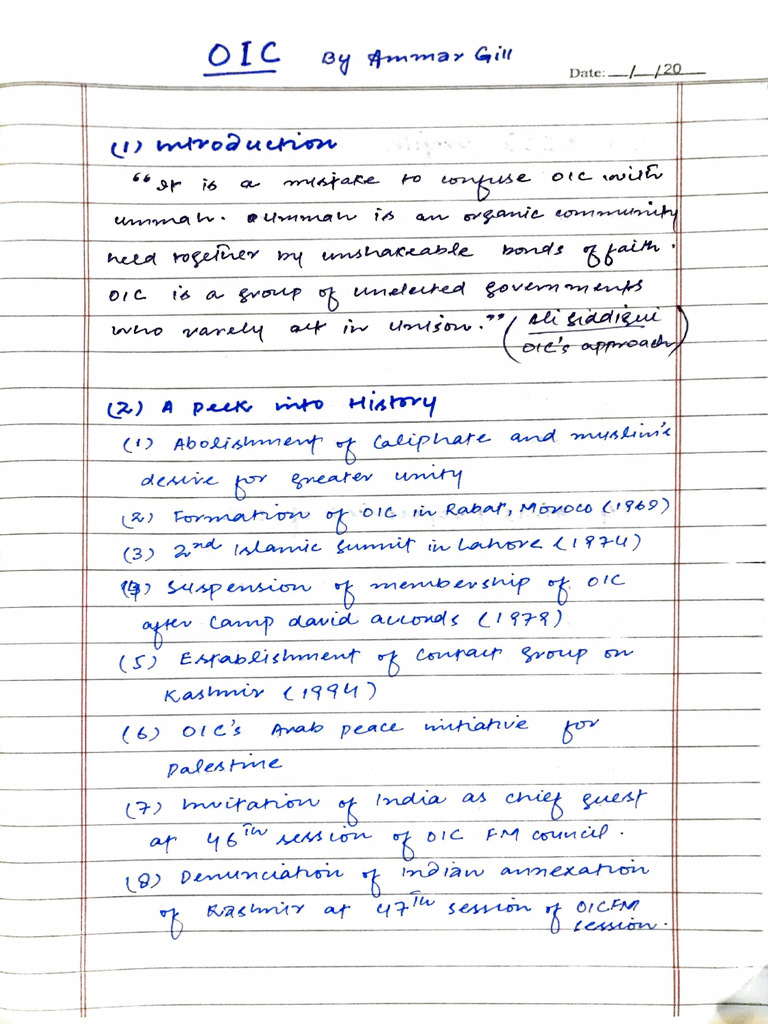 OIC By Ammar Gill
Date: __/__/20__
(1) Introduction
"It is a mistake to confuse OIC with
ummah. ummah is an organic community
held together by unshakeable bonds of faith.
OIC is a group of unelected governments
who rarely act in unison." (Ali Siddiqui
OIC's approach)
(2) A Peek into History
(1) Abolishment of Caliphate and muslim's
desire for greater unity
(2) Formation of OIC in Rabat, Moroco (1969)
(3) 2nd Islamic Summit in Lahore (1974)
(4) Suspension of membership of OIC
after Camp david accords (1979)
(5) Establishment of Contact group on
Kashmir (1994)
(6) OIC's Arab peace initiative for
Palestine
(7) Invitation of India as chief guest
at 46th session of OIC FM council.
(8) Denunciation of Indian annexation
of Kashmir at 47th session of OICFM
session.